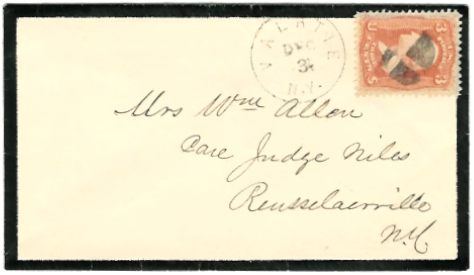 VALATIE
DEC
31
N.Y.
U 3 3
U S
Mrs Wm Allen
Care Judge Niles
Rensselaerville
N.Y.